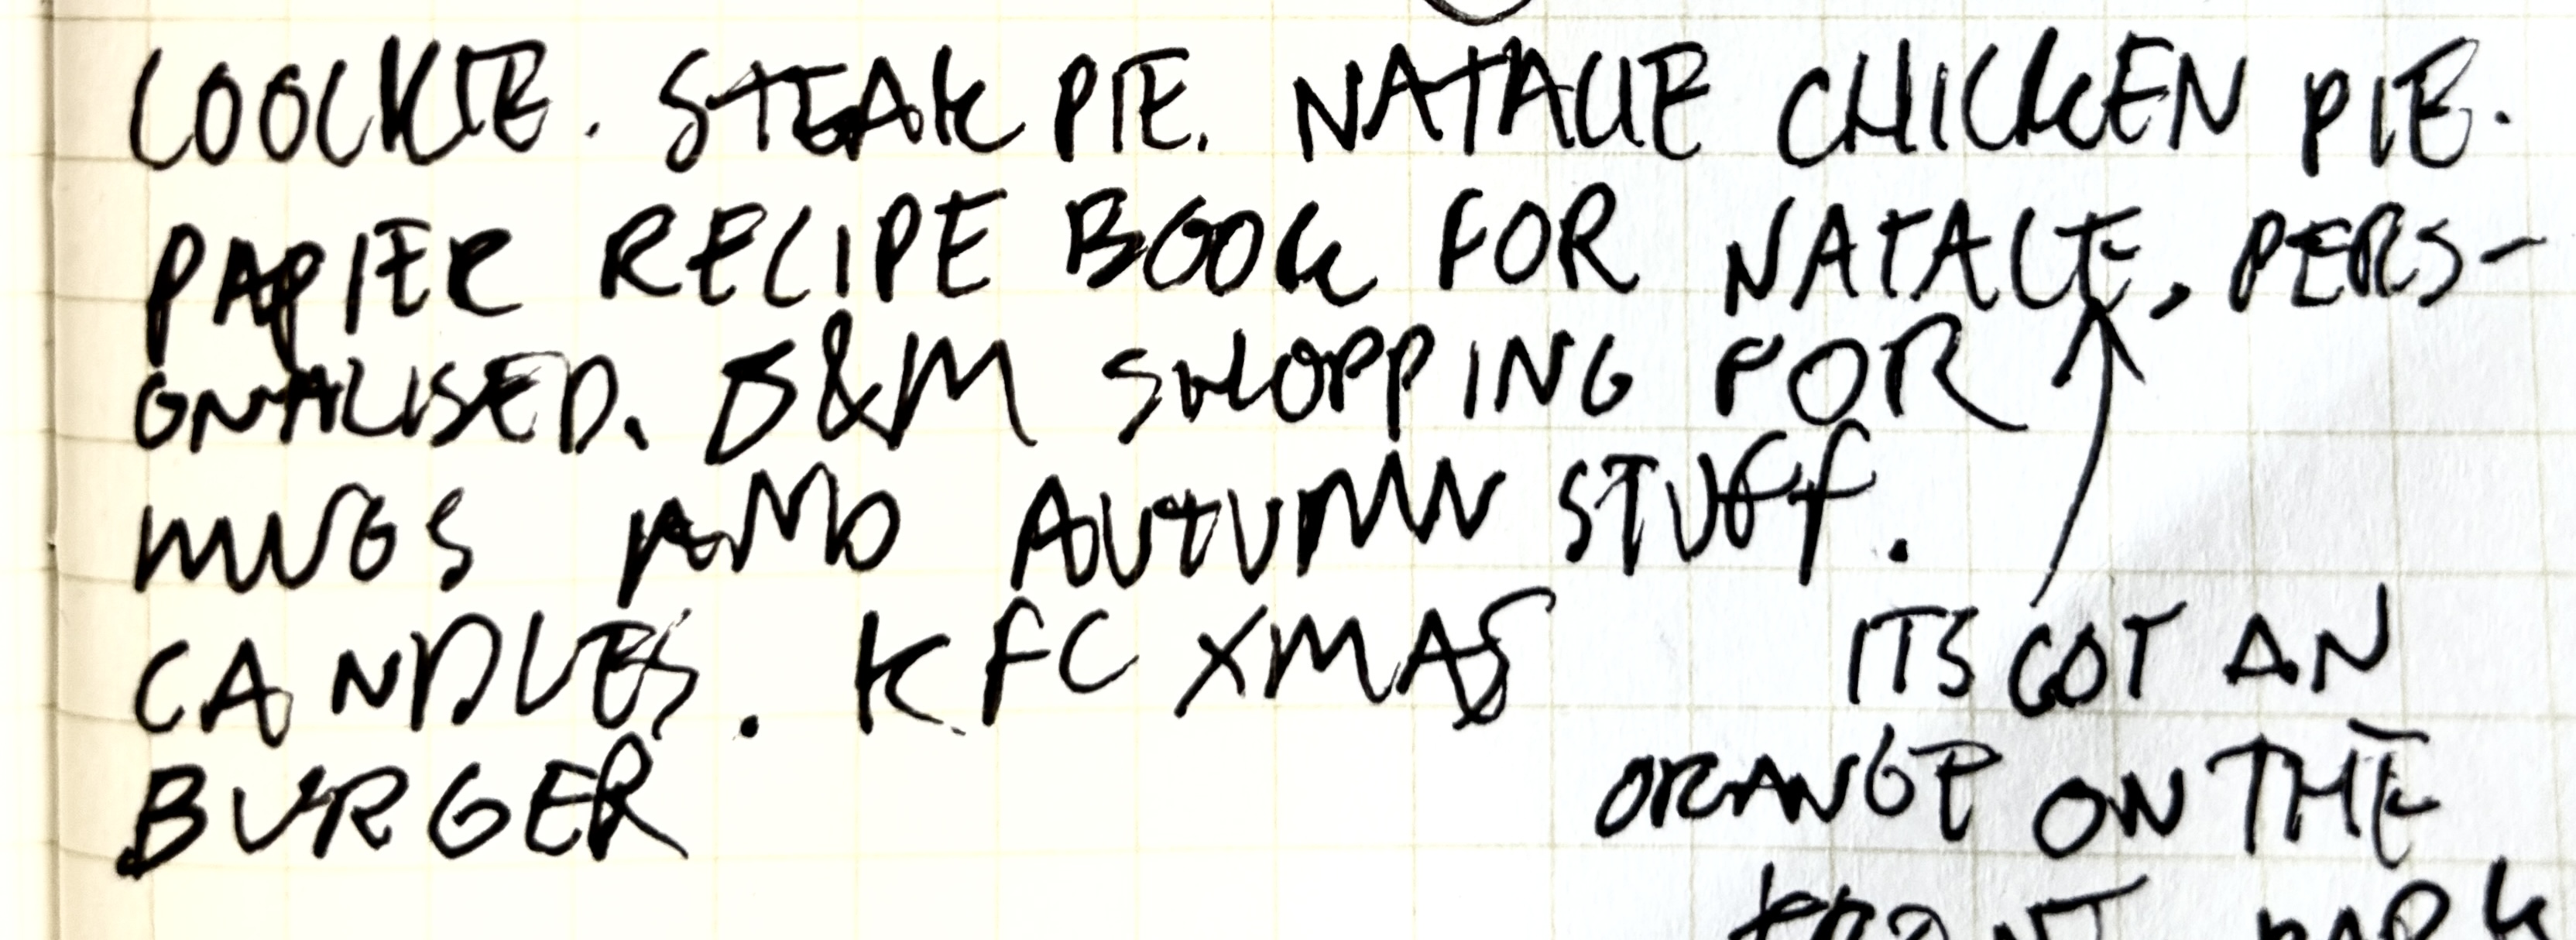 COOCKIE. STEAK PIE. NATALIE CHICKEN PIE.
PAPIER RECIPE BOOK FOR NATALIE, PERS-
ONALISED. B&M SHOPPING FOR
MUGS AND AUTUMN STUFF.
CANDLES. KFC XMAS
BURGER
ITS GOT AN
ORANGE ON THE
FRONT